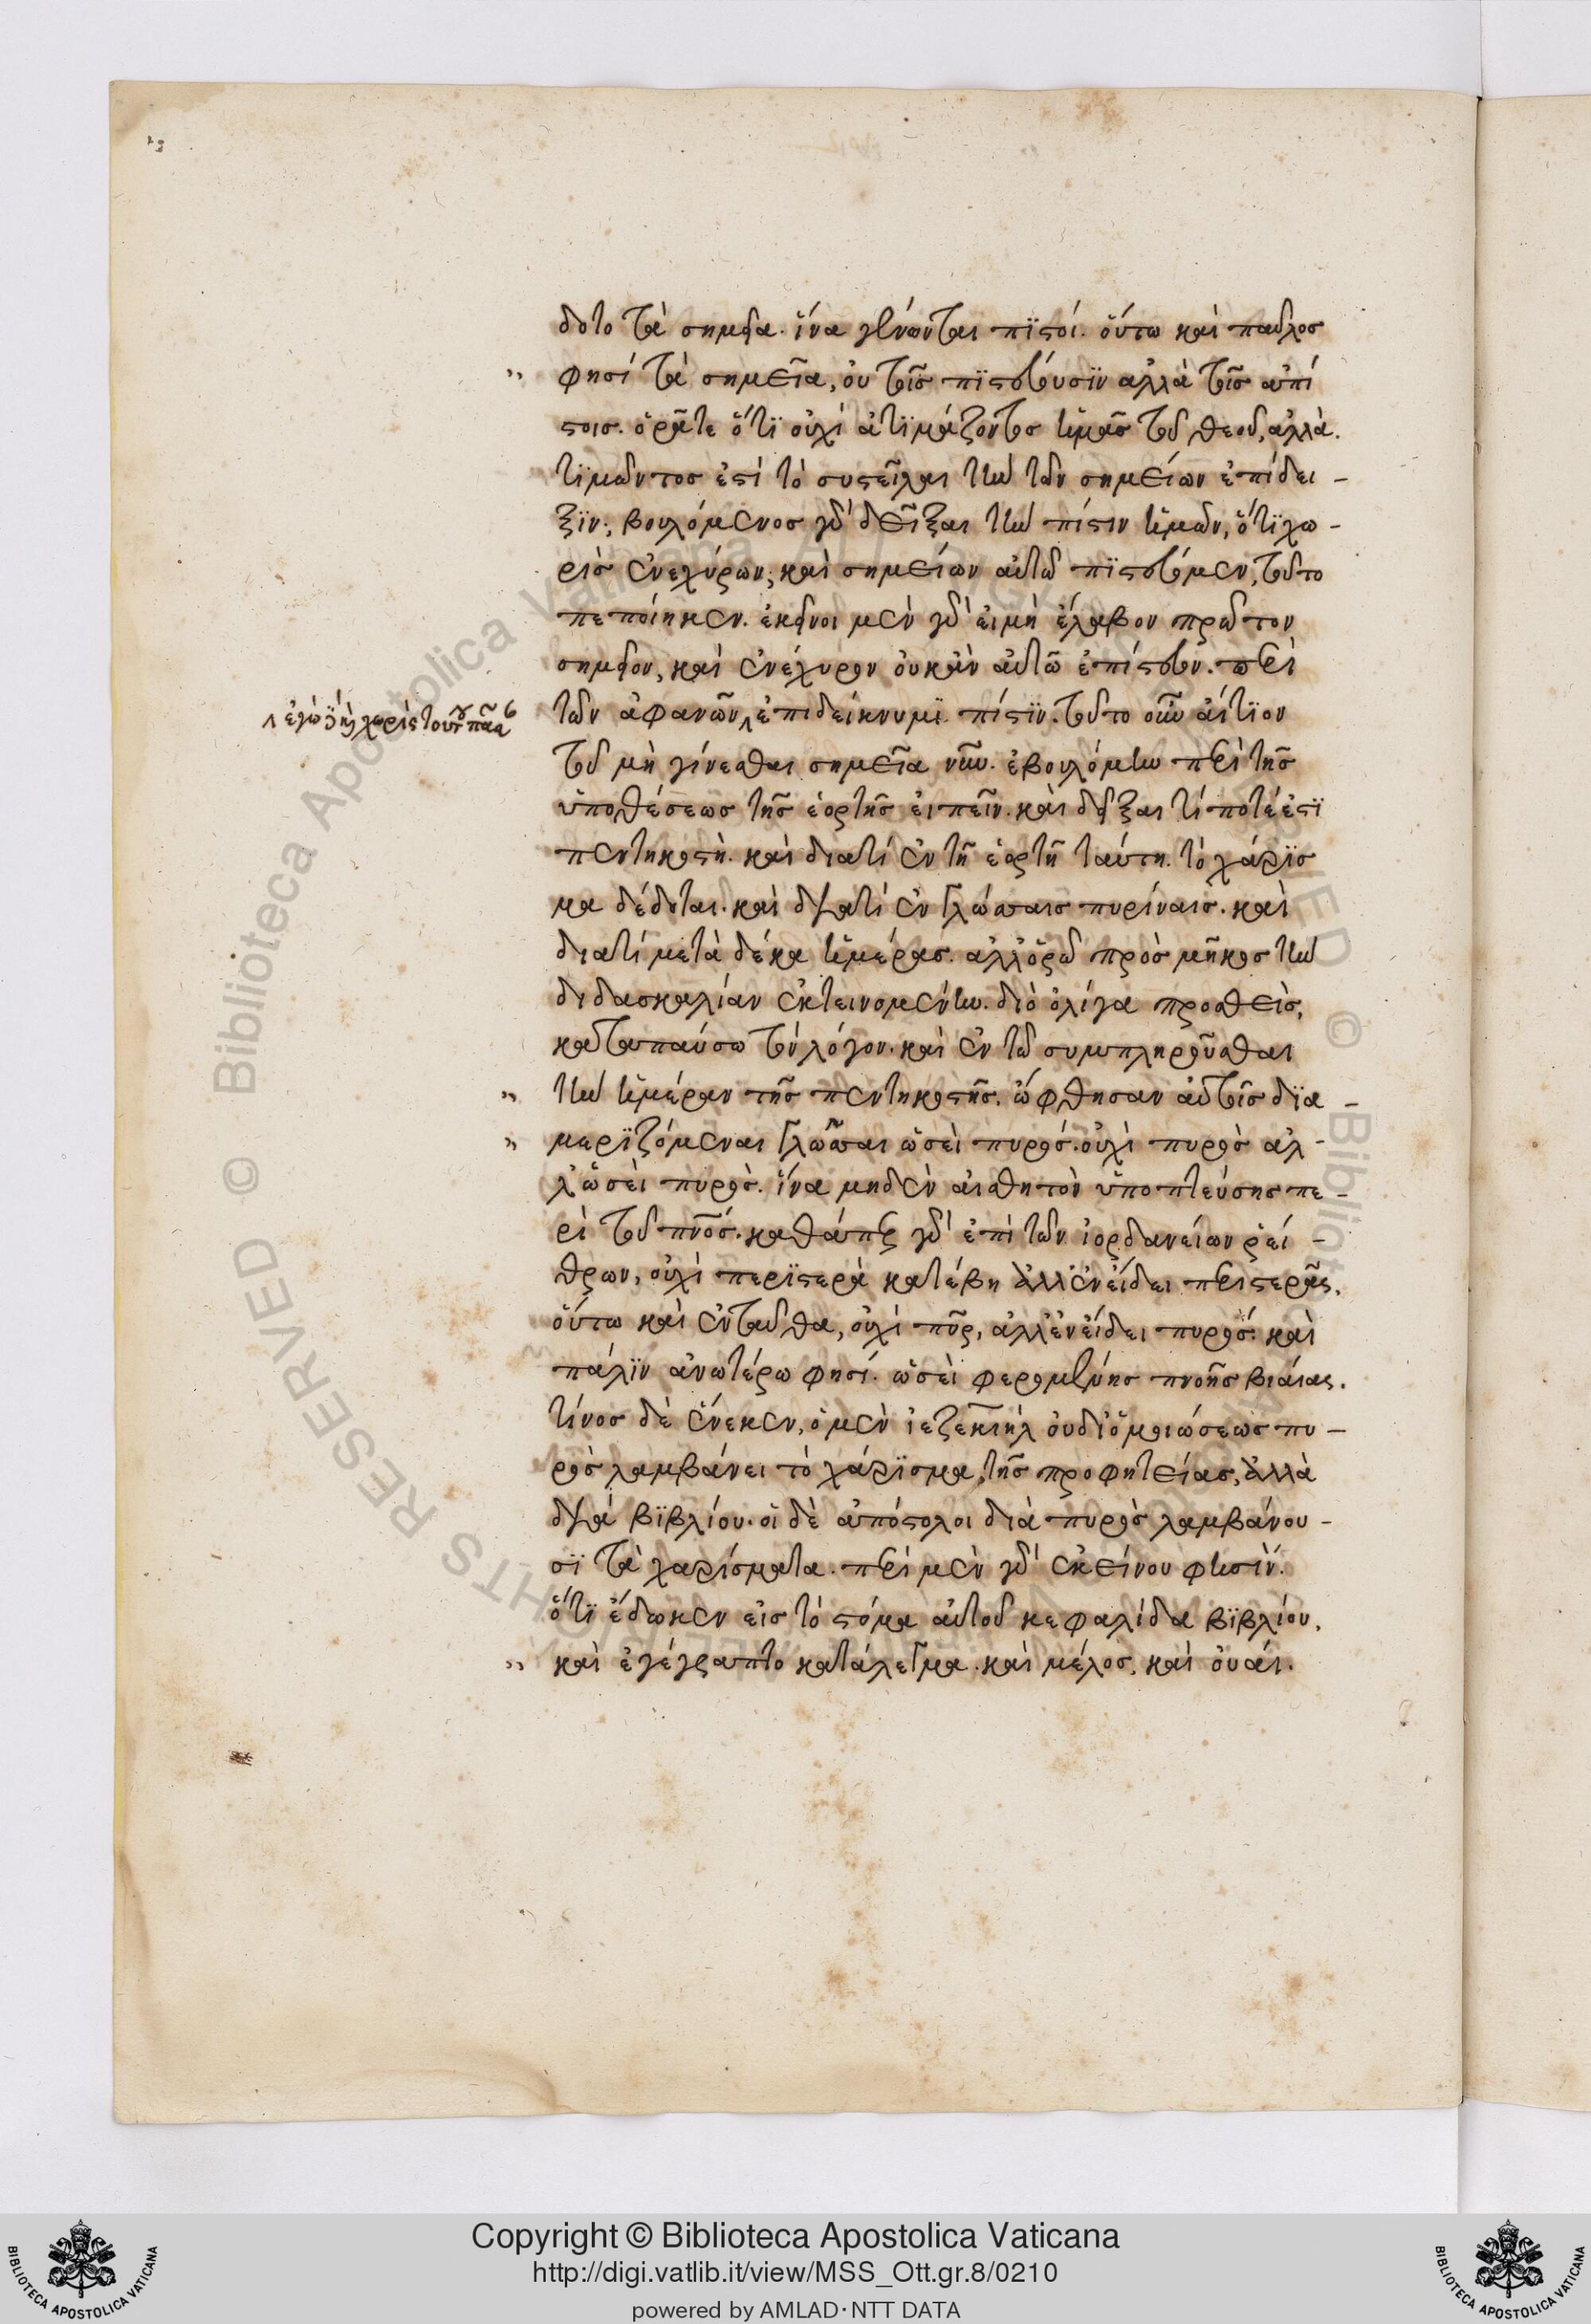 δοτο τὰ σημεῖα. ἵνα γένωνται πϊστοί. οὕτω καὶ παῦλος
φησί τὰ σημεῖα, οὐ τοῖς πϊστεύουσϊν ἀλλὰ τοῖς ἀπί
στοις. ὁρᾶτε ὅτϊ οὐχὶ ἀτϊμάζοντος ἡμᾶς τοῦ θεοῦ, ἀλλὰ.
τϊμῶντος ἐστὶ τὸ συστεῖλαι τὴν τῶν σημείων ἐπίδει -
ξϊν·, βουλόμενος γὰρ δεῖξαι τὴν πίστιν ἡμῶν, ὅτϊ χω -
ρὶς ἐνεχύρων, καὶ σημείων αὐτῶ πϊστεύομεν, τοῦτο
πεποίηκεν. ἐκεῖνοι μὲν γὰρ εἰμὴ ἔλαβον πρῶτον
σημεῖον, καὶ ἐνέχυρον οὐκἂν αὐτῶ ἐπίστευον. περὶ
τῶν ἀφανῶν ἐπιδείκνυμϊ πίστϊν. τοῦτο οὖν αἴτϊον
τοῦ μὴ γίνεσθαι σημεῖα νῦν. ἐβουλόμην περὶ τῆς
ὑποθέσεως τῆς ἑορτῆς εἰπεῖν. καὶ δεῖξαι τί ποτέ ἐστϊ
πεντηκοστὴ. καὶ διατί ἐν τῆ ἑορτῆ ταύτη. τὸ χάρϊσ
μα δέδοται. καὶ διατί ἐν γλώσσαις πυρίναις. καὶ
διατί μετὰ δέκα ἡμέρας. ἀλλ' ὁρῶ πρὸς μῆκος τὴν
διδασκαλίαν ἐκτεινομένην. διὸ ὀλίγα προσθεὶς,
καταπαύσω τὸν λόγον. καὶ ἐν τῶ συμπληροῦσθαι
τὴν ἡμέραν τῆς πεντηκοστῆς. ὤφθησαν αὐτοῖς δϊα -
μερϊζόμεναι γλῶσσαι ὡσεὶ πυρός. οὐχὶ πυρὸς ἀλ -
λ' ὡσεὶ πυρὸς. ἵνα μηδὲν αἰσθητὸν ὑποπτεύσης πε -
ρὶ τοῦ πνς. καθάπερ γὰρ ἐπὶ τῶν ἰορδανείων ῥεί -
θρων, οὐχὶ περϊστερὰ κατέβη ἀλλ' ἐν εἴδει περιστερᾶς,
οὕτω καὶ ἐνταῦθα, οὐχὶ πῦρ, ἀλλ' ἐν εἴδει πυρός. καὶ
πάλϊν ἀνωτέρω φησί. ὡσεὶ φερομένης πνοῆς βιαίας.
τίνος δὲ ἕνεκεν, ὁ μὲν ἰεζεκιὴλ οὐ δι' ὁμοιώσεως πυ -
ρὸς λαμβάνει τὸ χάρϊσμα, τῆς προφητείας, ἀλλὰ
διὰ βϊβλίου. οἱ δὲ ἀπόστολοι διὰ πυρὸς λαμβάνου -
σϊ τὰ χαρίσματα. περὶ μὲν γὰρ ἐκείνου φησὶν.
ὅτϊ ἔδωκεν εἰς τὸ στόμα αὐτοῦ κεφαλίδα βϊβλίου,
καὶ ἐγέγραπτο κατάλεγμα. καὶ μέλος, καὶ οὐαί.
Copyright © Biblioteca Apostolica Vaticana
http://digi.vatlib.it/view/MSS_Ott.gr.8/0210
powered by AMLAD·NTT DATA